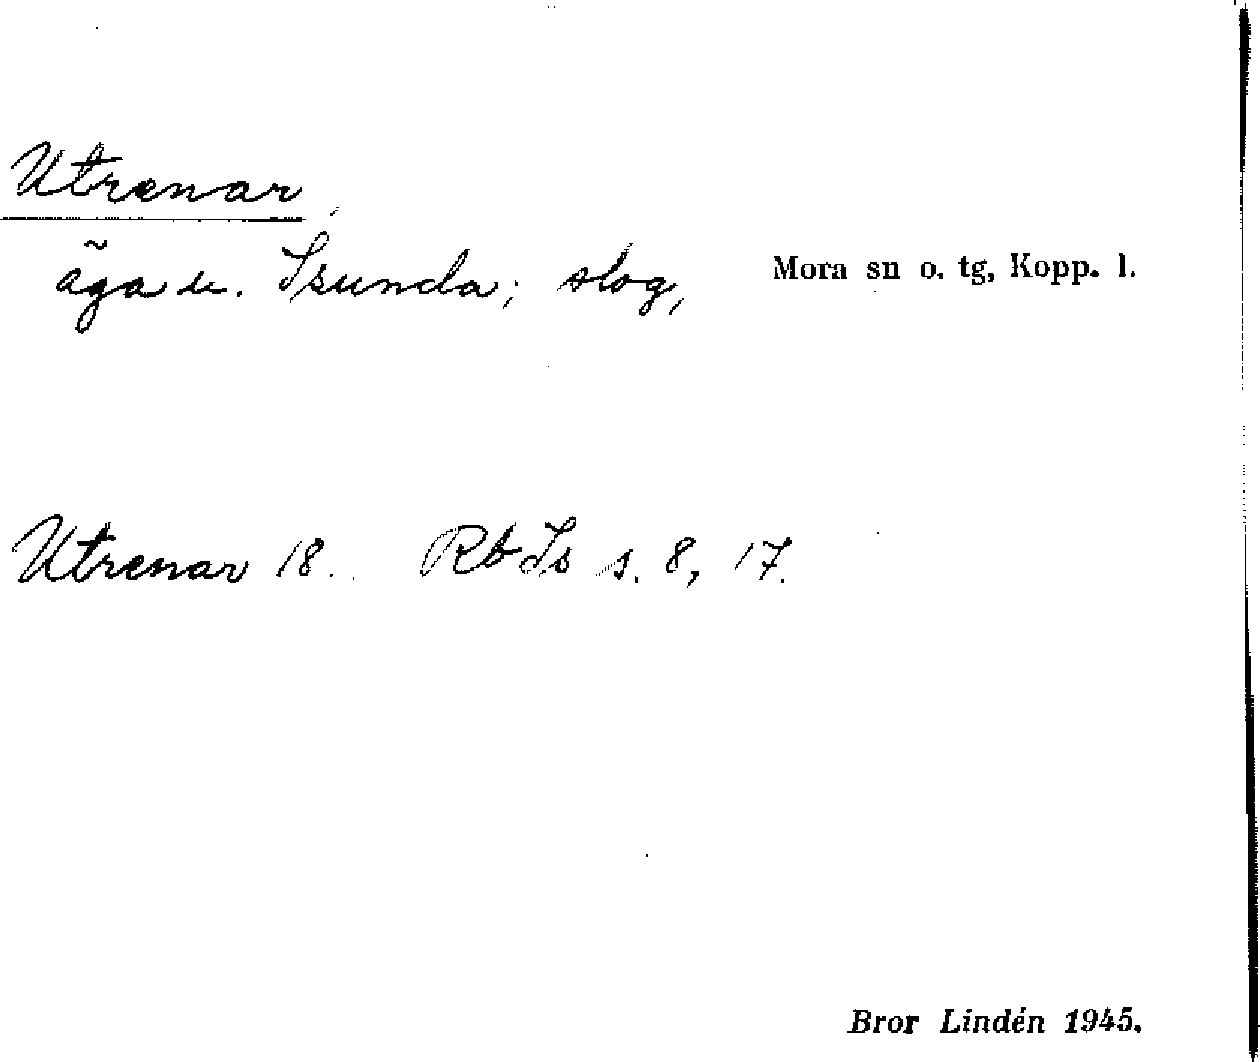 Utrenar,
äga u. Isunda; slog, Mora sn o. tg, Kopp. l.
Utrenar 18. Rb Is s. 8, 17.
Bror Lindén 1945.